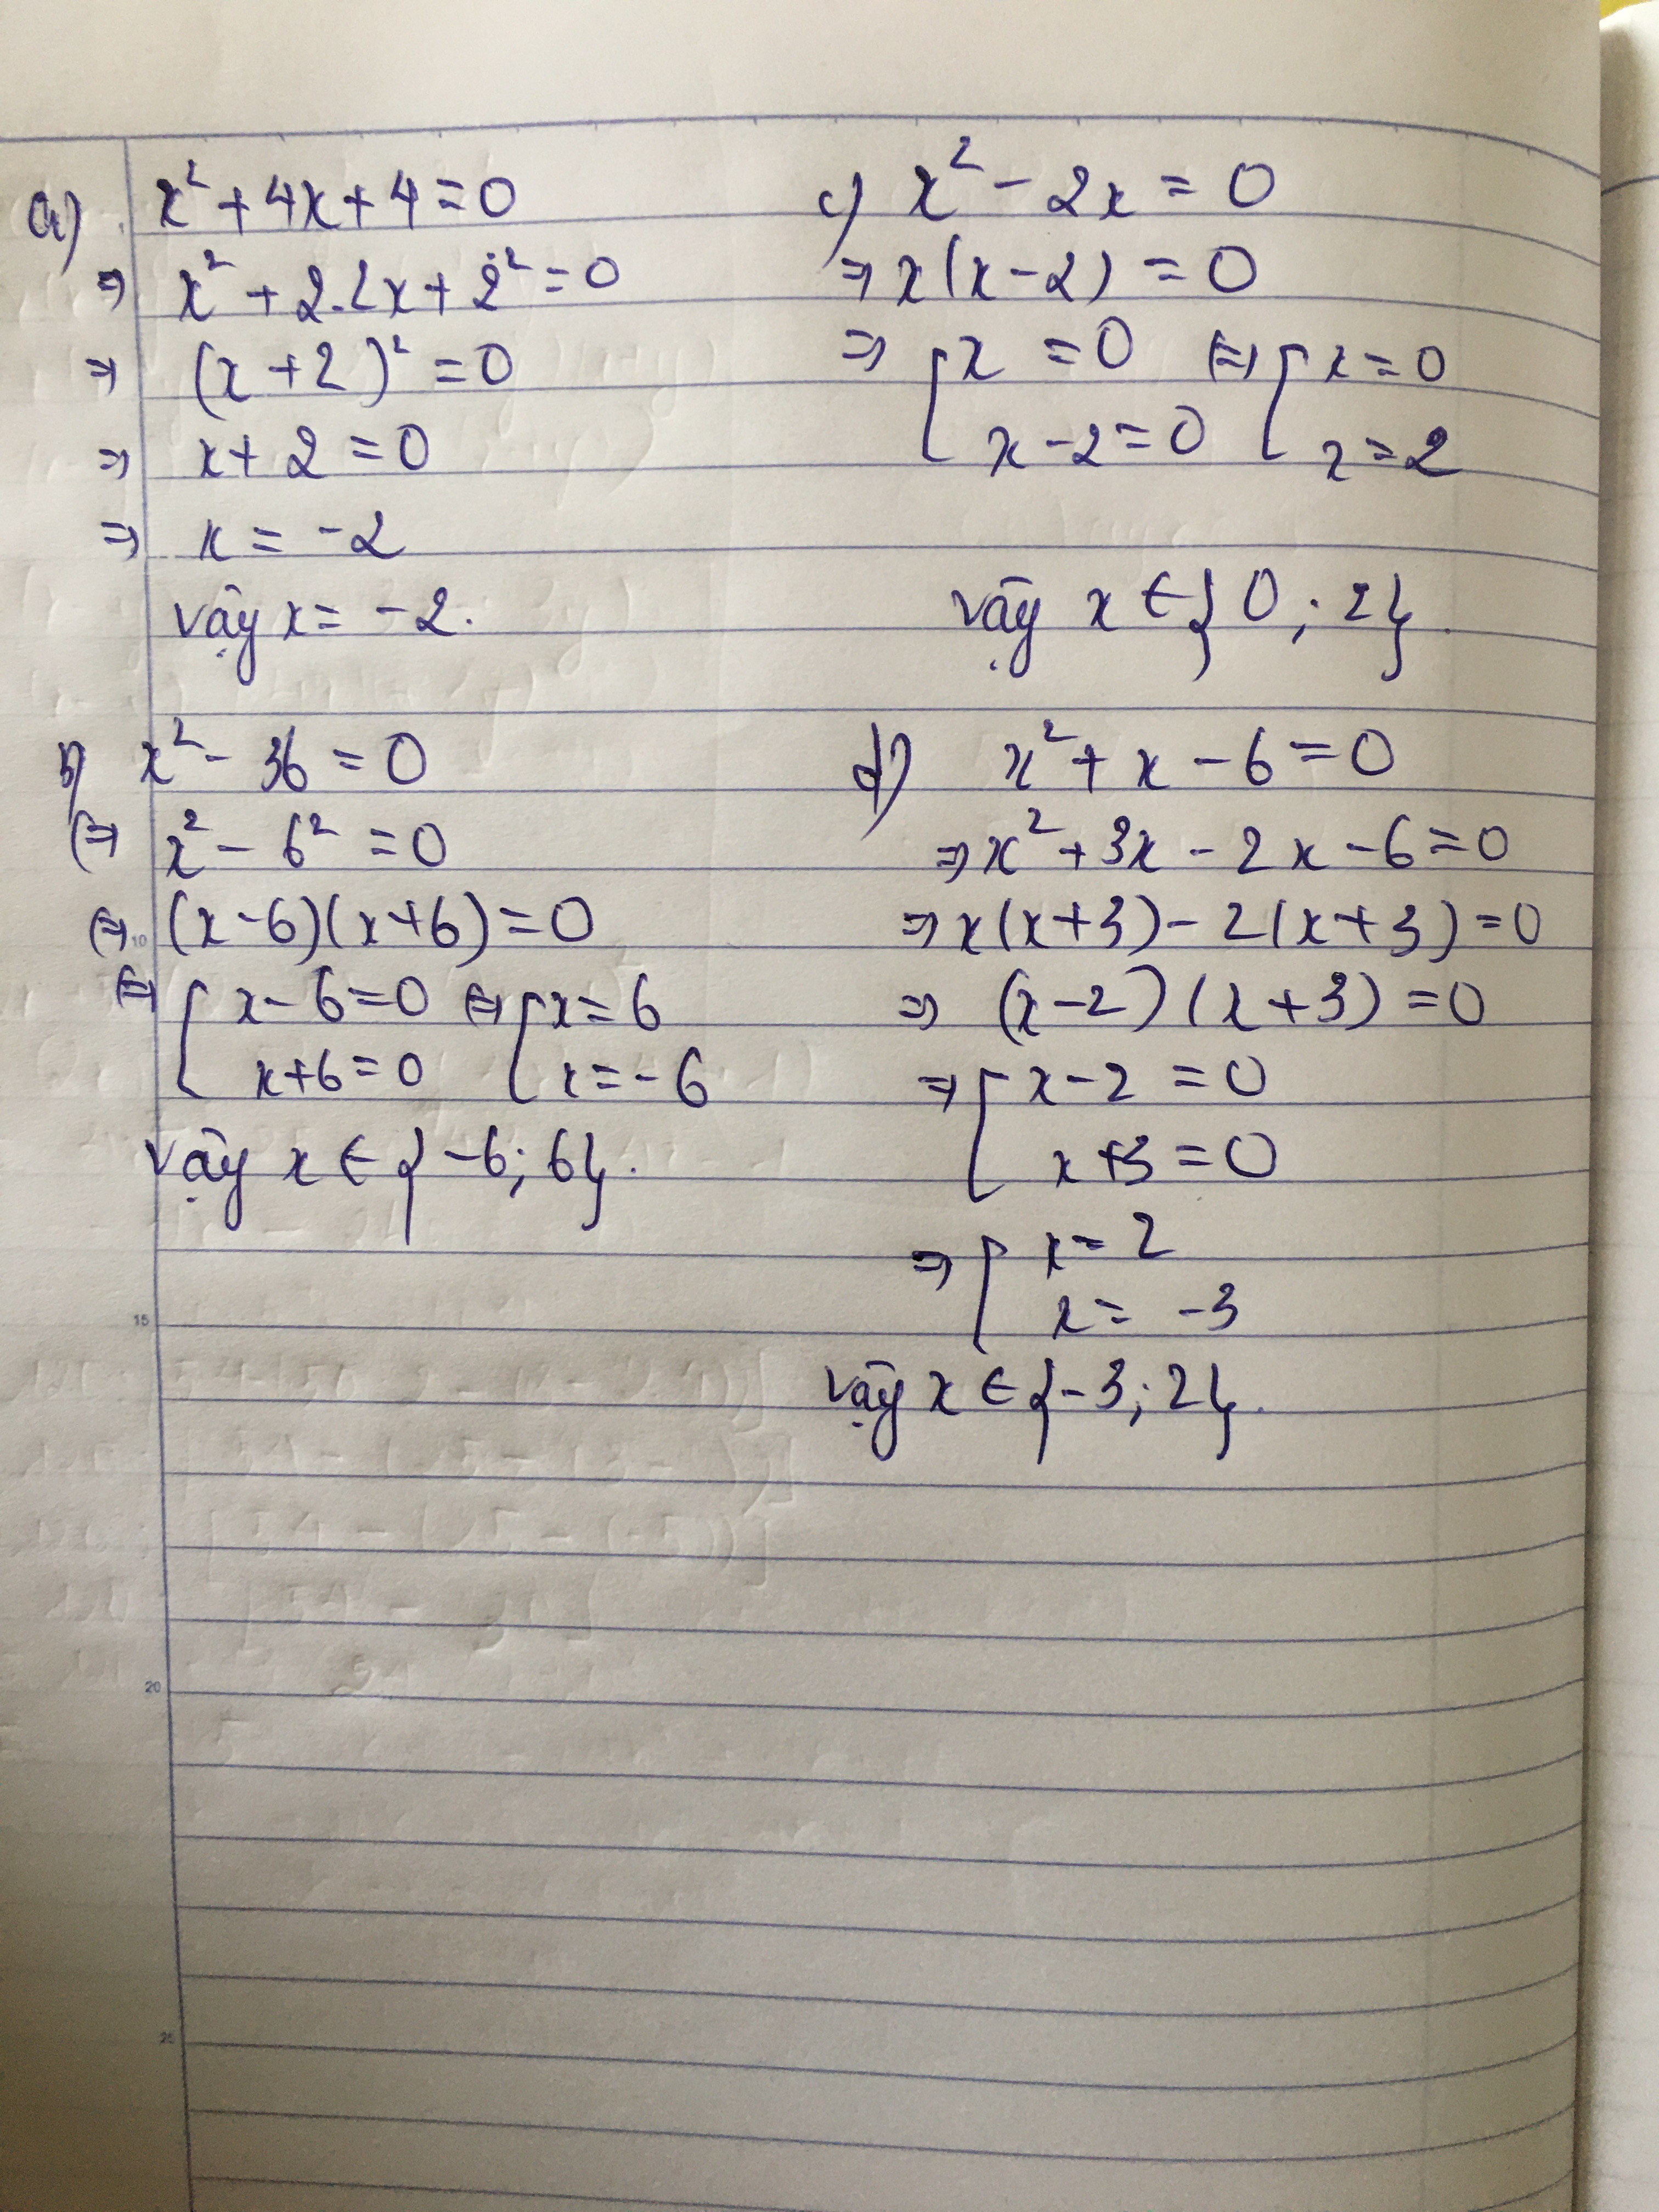 a) x² + 4x + 4 = 0
⇒ x² + 2.2x + 2² = 0
⇒ (x + 2)² = 0
⇒ x + 2 = 0
⇒ x = -2
Vậy x = -2.
b) x² - 36 = 0
⇔ x² - 6² = 0
⇔ (x - 6)(x + 6) = 0
⇔ [ x - 6 = 0 ⇔ [ x = 6
x + 6 = 0 x = -6
Vậy x ∈ {-6; 6}.
c) x² - 2x = 0
⇒ x(x - 2) = 0
⇒ [ x = 0 ⇔ [ x = 0
x - 2 = 0 x = 2
Vậy x ∈ {0; 2}.
d) x² + x - 6 = 0
⇒ x² + 3x - 2x - 6 = 0
⇒ x(x + 3) - 2(x + 3) = 0
⇒ (x - 2)(x + 3) = 0
⇒ [ x - 2 = 0
x + 3 = 0
⇒ [ x = 2
x = -3
Vậy x ∈ {-3; 2}.
10
15
20
25